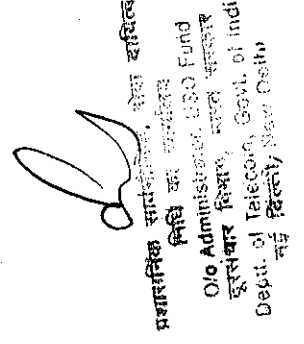 प्रशासनिक सार्वभौमिक सेवा दायित्व
निधि का कार्यालय
O/o Administrator USO Fund
दूरसंचार विभाग, भारत सरकार
Deptt. of Telecom, Govt. of Indi
नई दिल्ली, New Delhi